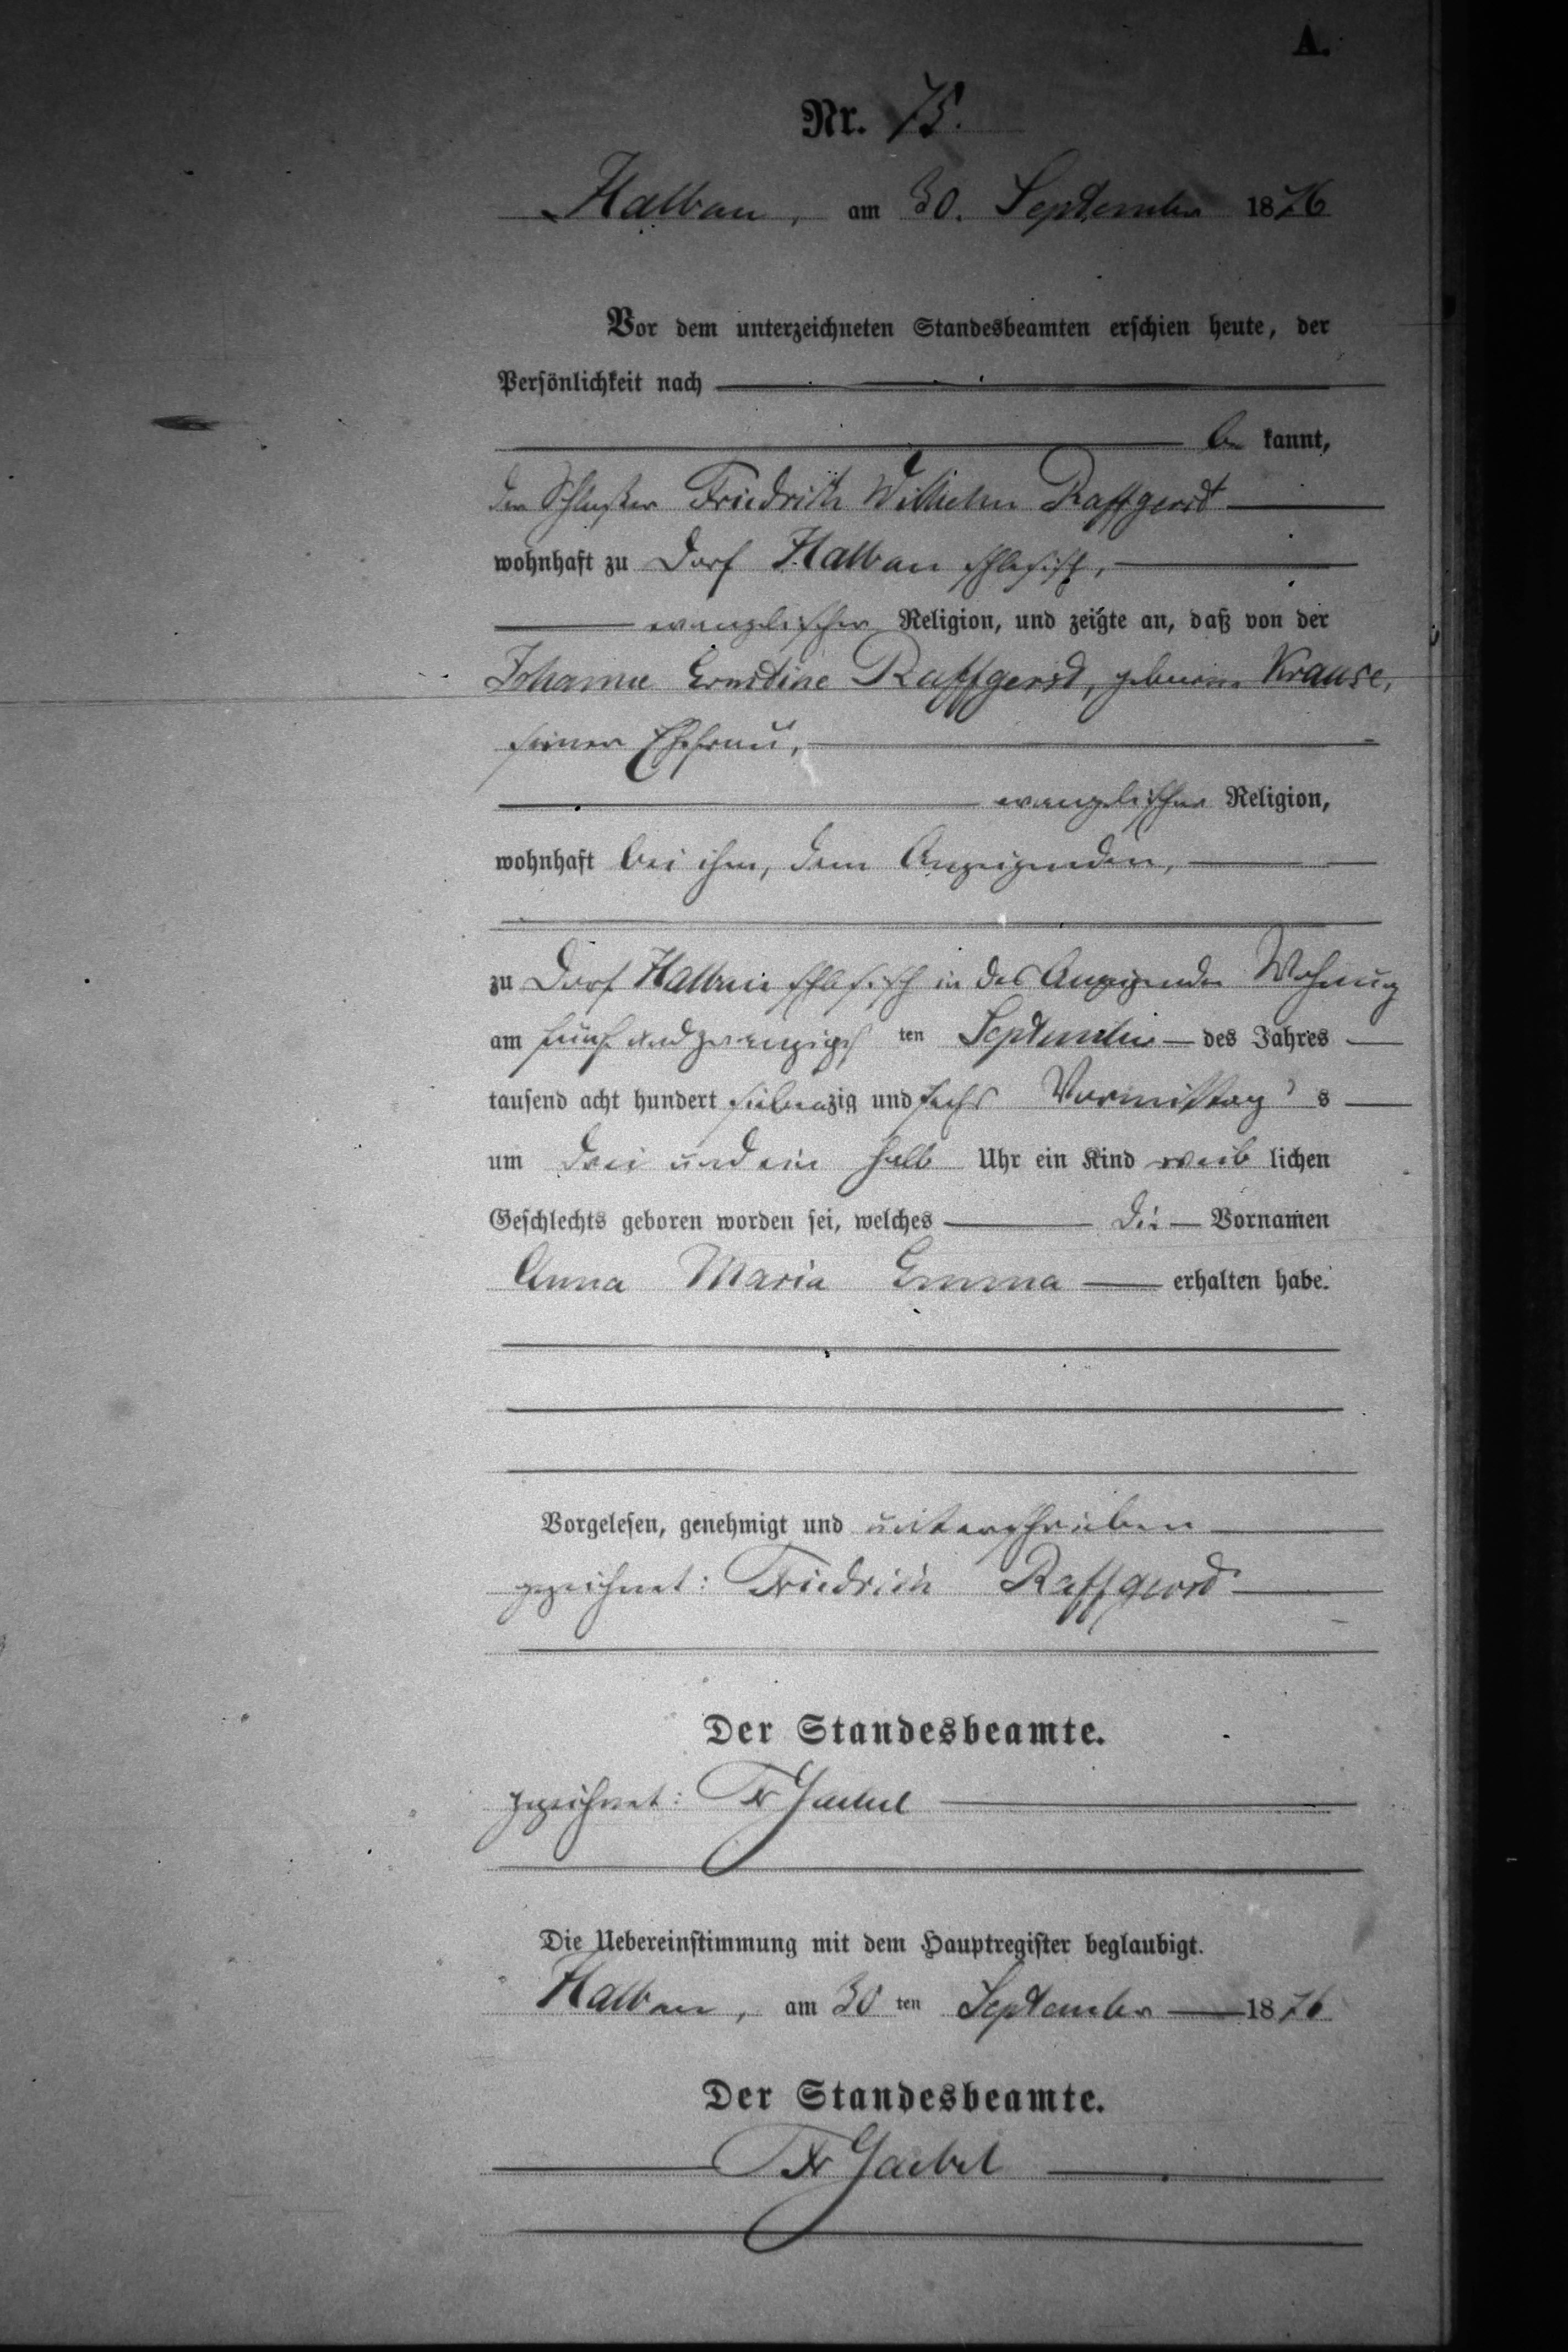 A.
Nr. 75.
Halbau, am 30. September 1876
Vor dem unterzeichneten Standesbeamten erschien heute, der
Persönlichkeit nach
be kannt,
der Friedrich Wilhelm Raffgerst
wohnhaft zu Dorf Halbau schlesisch,
evangelischer Religion, und zeigte an, daß von der
Johanne Ernestine Raffgerst, geborene Krause,
seiner Ehefrau,
evangelischer Religion,
wohnhaft bei ihm, dem Anzeigenden,
zu Dorf Halbau schlesisch in des Anzeigenden Wohnung
am fünf und zwanzigs ten September des Jahres
tausend acht hundert siebenzig und sechs Vormittag s
um drei und ein halb Uhr ein Kind weib lichen
Geschlechts geboren worden sei, welches die Vornamen
Anna Maria Emma erhalten habe.
Vorgelesen, genehmigt und unterschrieben
gezeichnet: Friedrich Raffgerst
Der Standesbeamte.
gezeichnet: Fr Gaebel
Die Uebereinstimmung mit dem Hauptregister beglaubigt.
Halbau, am 30 ten September 1876
Der Standesbeamte.
Fr Gaebel